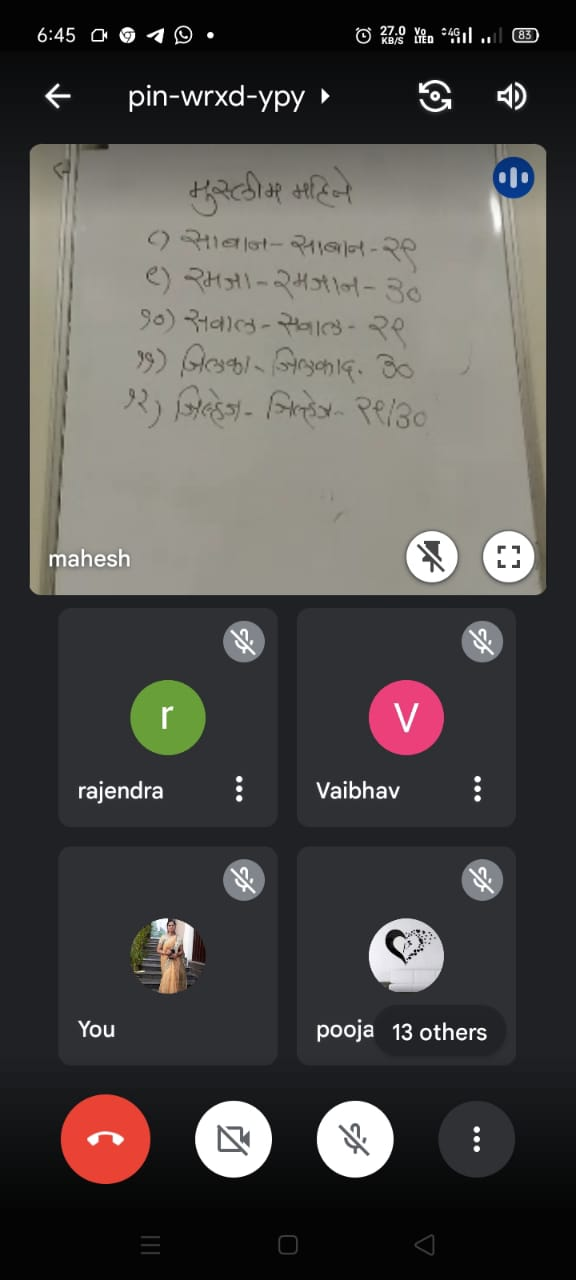 6:45
27.0 KB/S
Vo LTED
4G
83
pin-wrxd-ypy
मुस्लीम महिने
८) साबान - साबान - २९
९) रमजा - रमजान - ३०
१०) सवाल - सवाल - २९
११) जिलका - जिलकाद. ३०
१२) जिल्हेज - जिल्हेज - २९/३०
mahesh
r
V
rajendra
Vaibhav
You
pooja
13 others